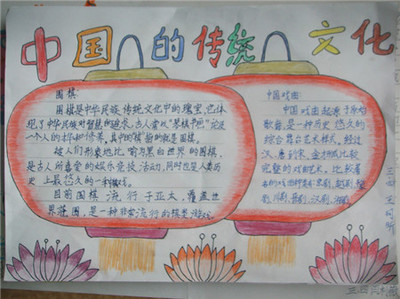 中国的传统文化
围棋
围棋是中华民族传统文化中的瑰宝,它体
现了中华民族对智慧的追求,古人常以“琴棋书画”论及
一个人的才华和修养,其中的“棋”指的就是围棋。
被人们形象地比喻为黑白世界的围棋,
是古人所喜爱的娱乐竞技活动,同时也是人类历
史上最悠久的一种棋戏。
目前围棋流行于亚太,覆盖世
界范围,是一种非常流行的棋类游戏
中国戏曲
中国戏曲起源于原始
歌舞,是一种历史悠久的
综合舞台艺术样式。经过
汉、唐到宋、金才形成比较
完整的戏曲艺术,比较著
名的戏曲种类有:京剧、